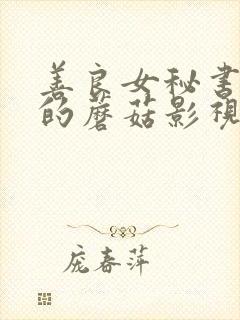 善良女秘书
的蘑菇影视
庞春萍